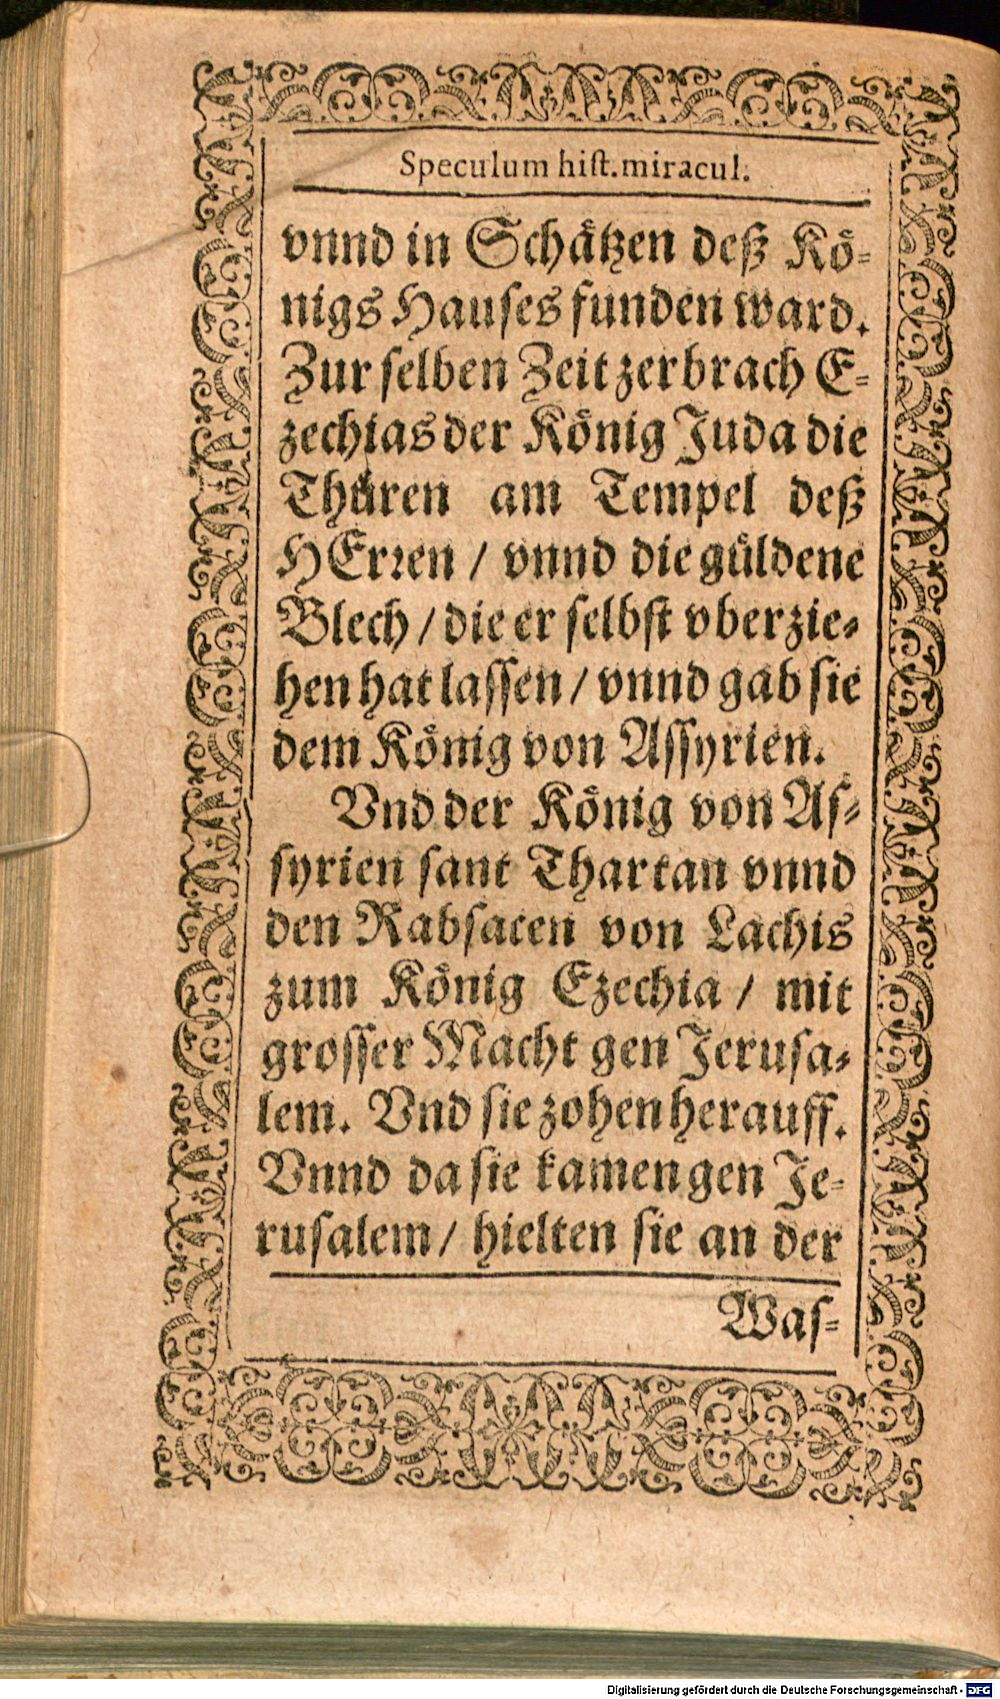 Speculum hiſt. miracul.
vnnd in Schaͤtzen deß Koͤ-
nigs Hauſes funden ward.
Zur ſelben Zeit zerbrach E-
zechias der Koͤnig Juda die
Thuͤren am Tempel deß
HErꝛen / vnnd die guͤldene
Blech / die er ſelbſt vberzie-
hen hat laſſen / vnnd gab ſie
dem Koͤnig von Aſſyrien.
Vnd der Koͤnig von Aſ-
ſyrien ſant Thartan vnnd
den Rabſacen von Lachis
zum Koͤnig Ezechia / mit
groſſer Macht gen Jeruſa-
lem. Vnd ſie zohen herauff.
Vnnd da ſie kamen gen Je-
ruſalem / hielten ſie an der
Waſ-
Digitalisierung gefördert durch die Deutsche Forschungsgemeinschaft - DFG